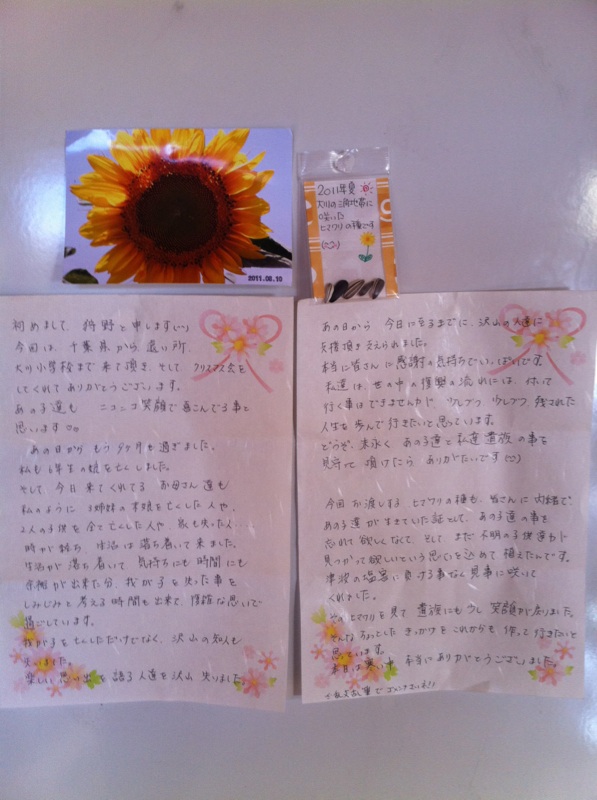 2011.08.10
2011年夏
大川の三角地帯に
咲いた
ヒマワリの種です
初めまして、狩野と申します
今回は、千葉県から遠い所、
大川小学校まで来て頂き、そして、クリスマス会を
してくれてありがとうございます。
あの子達も ニコニコ笑顔で喜んでる事と
思います
あの日からもう9ヶ月も過ぎました。
私も6年生の娘を亡くしました。
そして今日来てくれてる お母さん達も
私のように 3姉妹の末娘を亡くした人や、
2人の子供を全て亡くした人や、家も失った人…
時が経ち、生活は落ち着いて来ました。
生活が落ち着いて、気持ちにも時間にも
余裕が出来た分、我が子を失った事を
しみじみと考える時間も出来て、複雑な思いで
過ごしています。
我が子を亡くしただけでなく、沢山の知人も
失いました。
楽しい思い出を語る人達を沢山失りました。
あの日から今日に至るまでに、沢山の人達に
支援頂き支えられました。
本当に皆さんに感謝の気持ちでいっぱいです。
私達は、世の中の復興の流れには、付いて
行く事はできませんが、少しづつ、少しづつ、残された
人生を歩んで行きたいと思っています。
どうぞ、末永く あの子達と私達遺族の事を
見守って頂けたら ありがたいです
今回お渡しする ヒマワリの種も、皆さんに内緒で、
あの子達が生きていた証として、あの子達の事を
忘れて欲しくなくて、そして、まだ不明の子供達が
見つかって欲しいという思いを込めて植えたんです。
津波の塩害に負ける事なく見事に咲いて
くれました。
そのヒマワリを見て 遺族にも少し 笑顔が戻りました。
そんなちょっとした きっかけをこれからも 作って行きたいと
思っています。
本日は寒い中 本当にありがとうございました。
乱文乱筆でゴメンナサイ